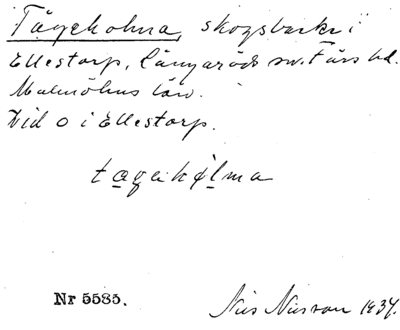 Tågekolma, skogsbacke i
Ellestorp, Långaröds sn. Färs hd.
Malmöhus län.
Vid o i Ellestorp.
tagekølma
Nr 5585.
Nils Nilsson 1934.